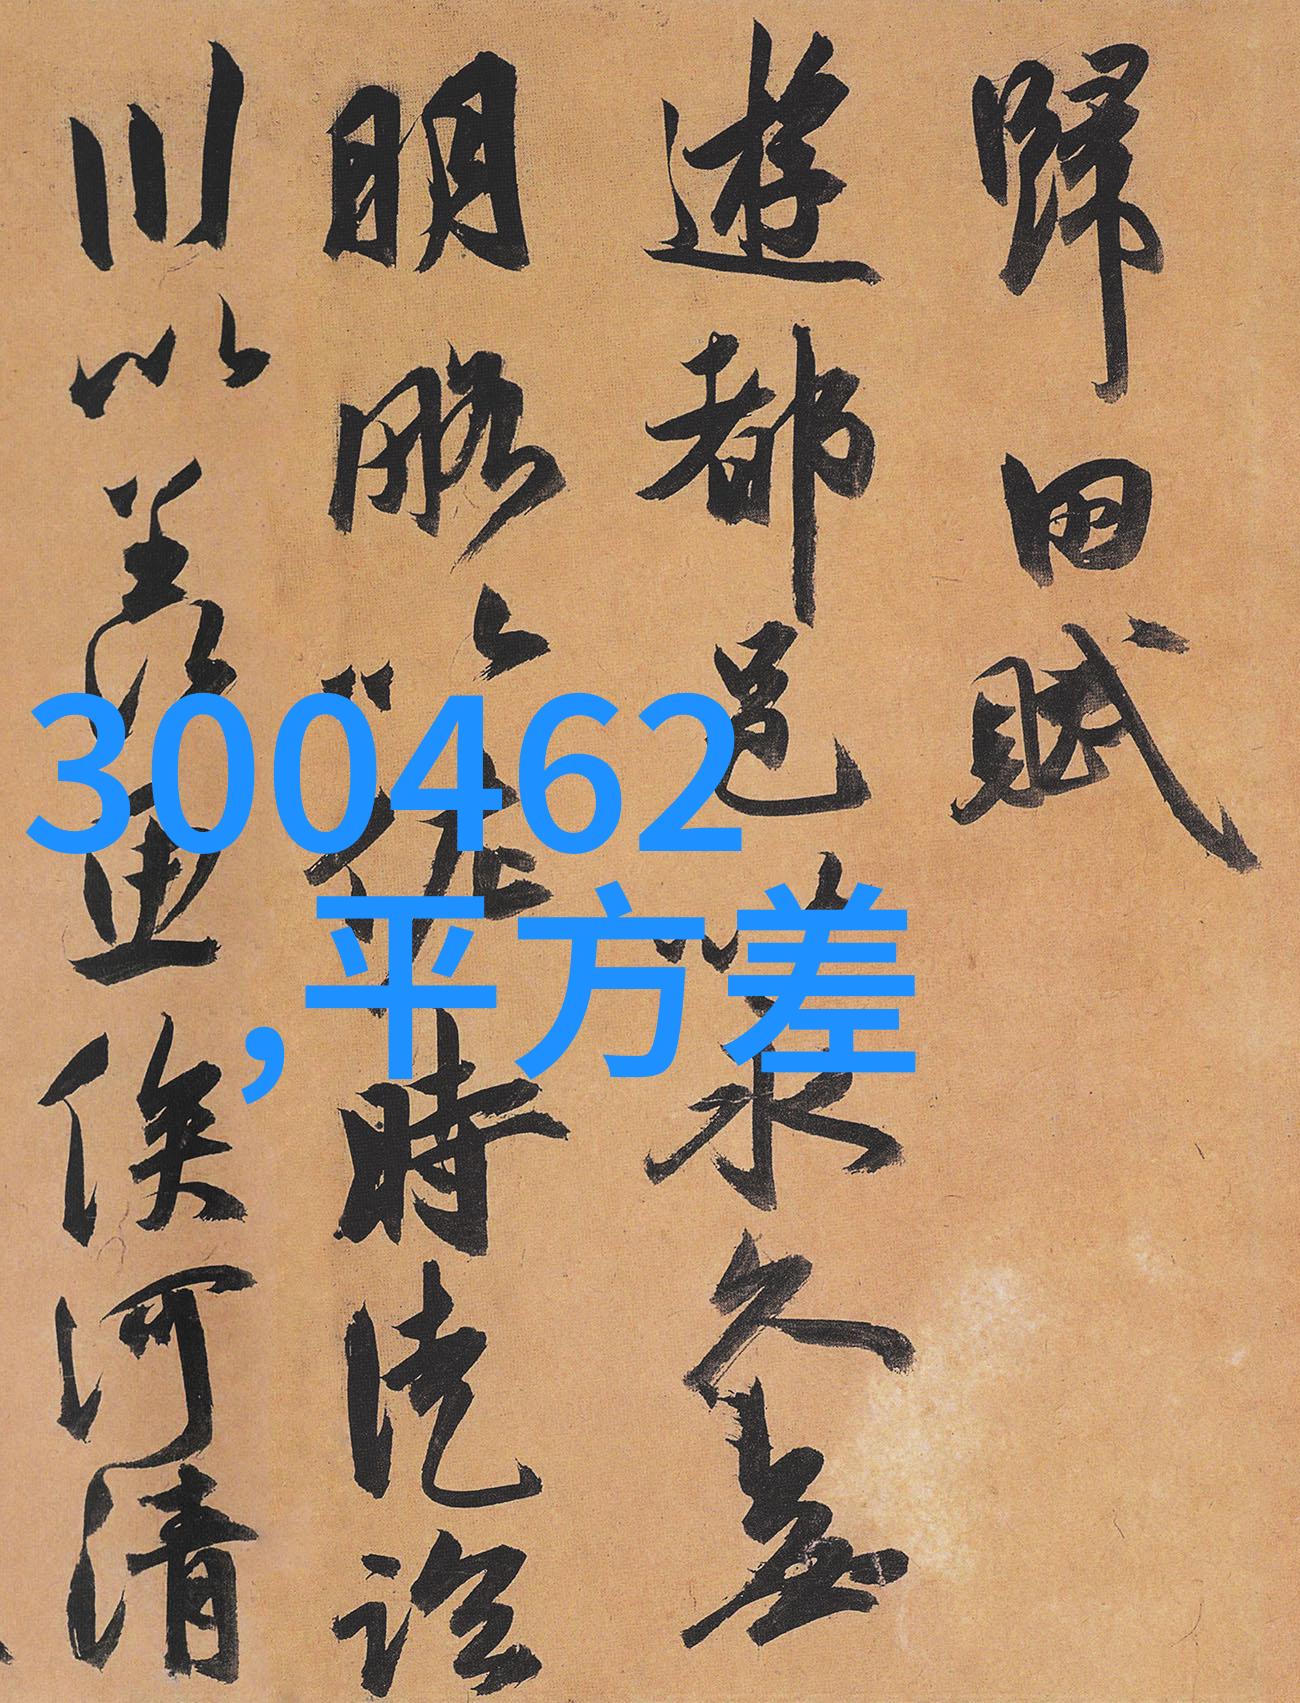 歸田賦
遊都邑以永久無
明略以佐時徒臨
川以羨魚俟河清
300462
,平方差